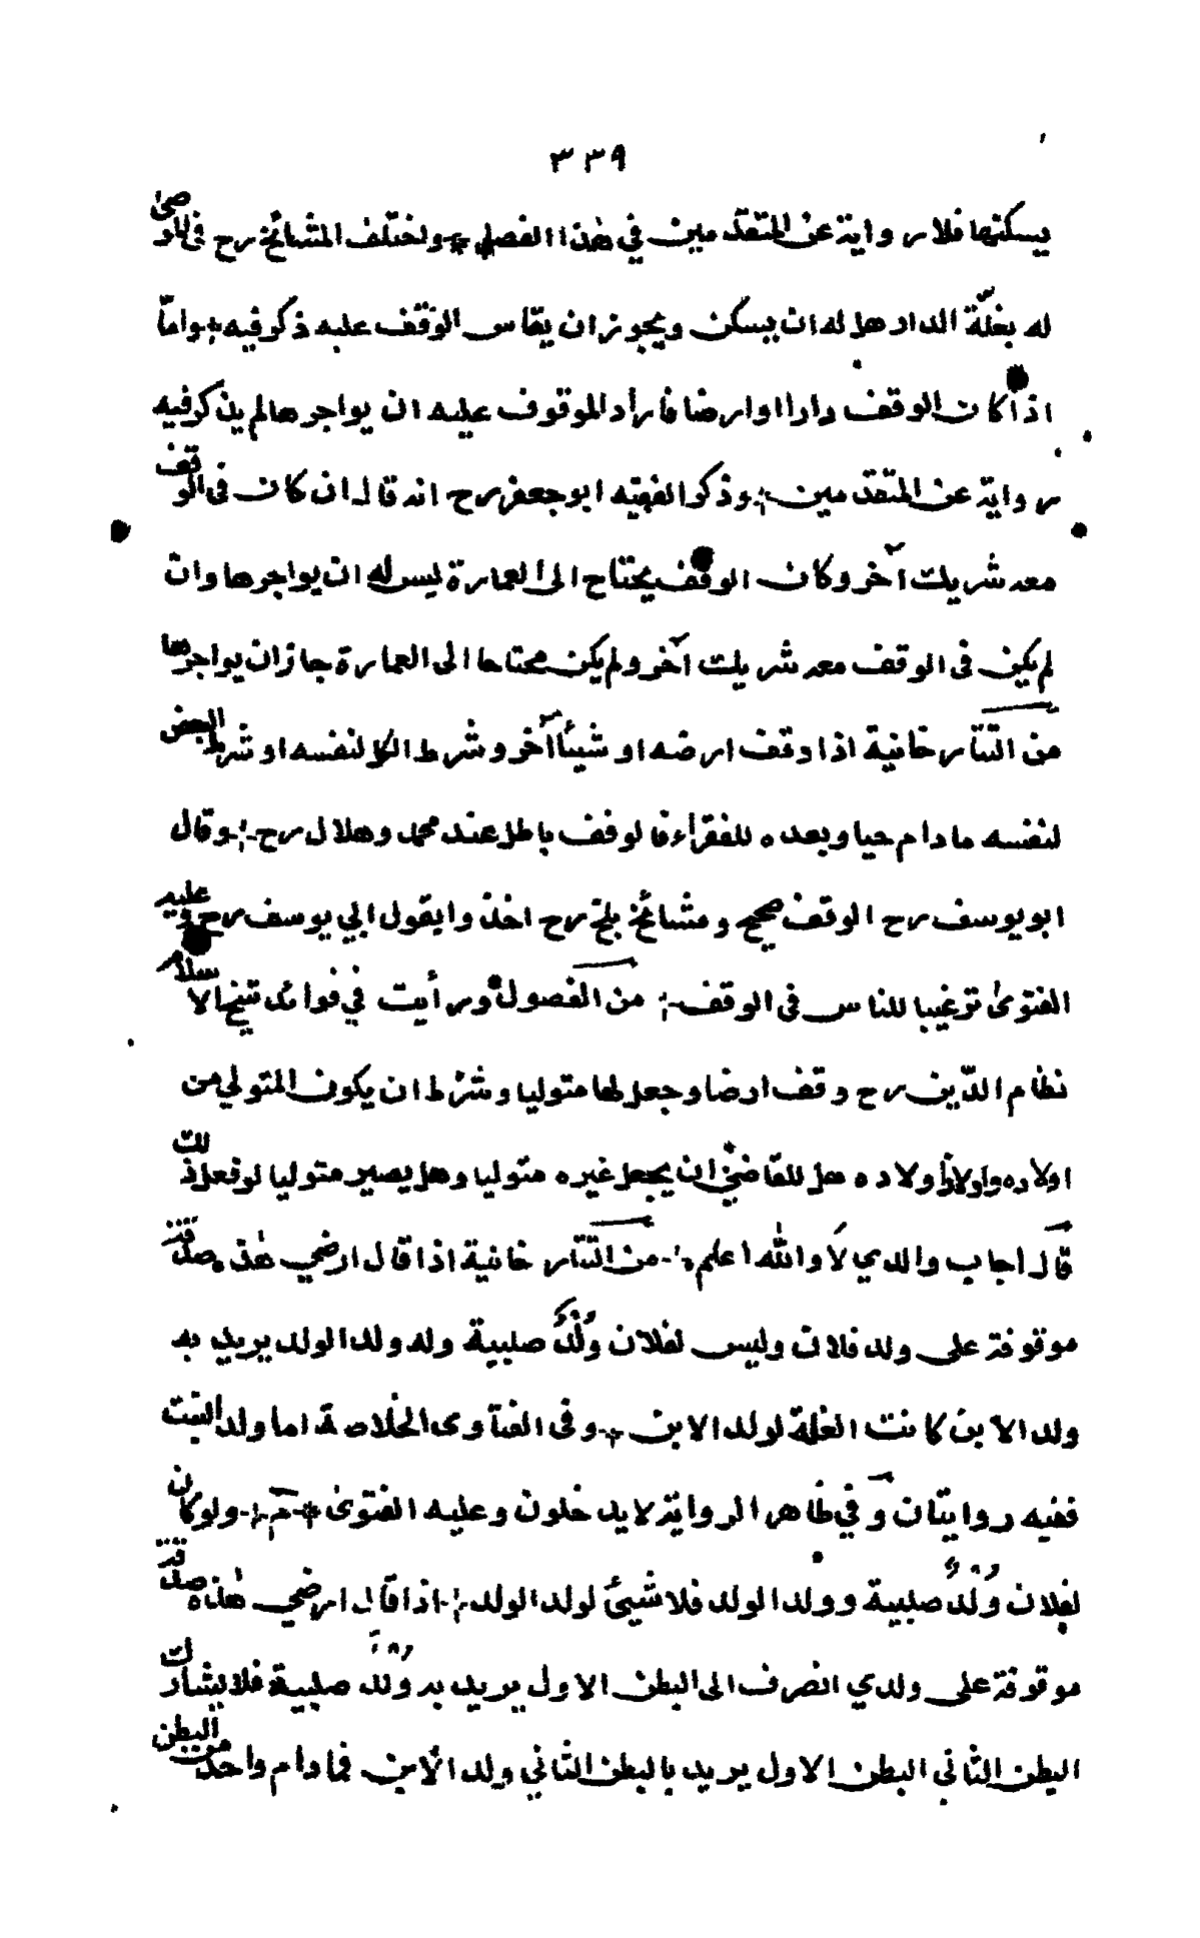 ٣٣٩
يسكنها فلا رواية عن المتقدمين في هذا الفصل واختلف المشائخ رح فى الموصى
له بغلّة الدار هل له ان يسكن ويجوز ان يقاس الوقف عليه ذكر فيه وامّا
اذا كان الوقف دارا او ارضا فاراد الموقوف عليه ان يواجرها لم يذكر فيه
رواية عن المتقدمين وذكر الفقيه ابو جعفر رح انه قال ان كان فى الوقف
معه شريك آخر وكان الوقف يحتاج الى العمارة ليس له ان يواجرها وان
لم يكن فى الوقف معه شريك آخر ولم يكن محتاجا الى العمارة جاز ان يواجرها
من التتار خانية اذا وقف ارضه او شيئا آخر وشرط الكل لنفسه او شرط البعض
لنفسه ما دام حيا وبعده للفقراء فالوقف باطل عند محمد وهلال رح وقال
ابو يوسف رح الوقف صحيح ومشائخ بلخ رح اخذوا بقول ابي يوسف رح وعليه
الفتوىٰ ترغيبا للناس فى الوقف من الفصول ورأيت في فوائد شيخ الاسلام
نظام الدّين رح وقف ارضا وجعل لها متوليا وشرط ان يكون المتولي من
اولاده واولاد اولاده هل للقاضي ان يجعل غيره متوليا وهل يصير متوليا لو فعل ذلك
قال اجاب والدي لا والله اعلم من التتار خانية اذا قال ارضي هٰذه صدقة
موقوفة على ولد فلان وليس لفلان وُلْدٌ صلبية وله ولد الولد يريد به
ولد الابن كانت الغلة لولد الابن وفى الفتاوى الخلاصة اما ولد البنت
ففيه روايتان وفي ظاهر الرواية لا يدخلون وعليه الفتوىٰ م ولو كان
لفلان وُلْدٌ صلبية وولد الولد فلا شيئ لولد الولد اذا قال ارضي هٰذه صدقة
موقوفة على ولدي انصرف الى البطن الاول يريد به وُلْدًا صلبية فلا يشارك
البطن الثاني البطن الاول يريد بالبطن الثاني ولد الابن فما دام واحد من البطن